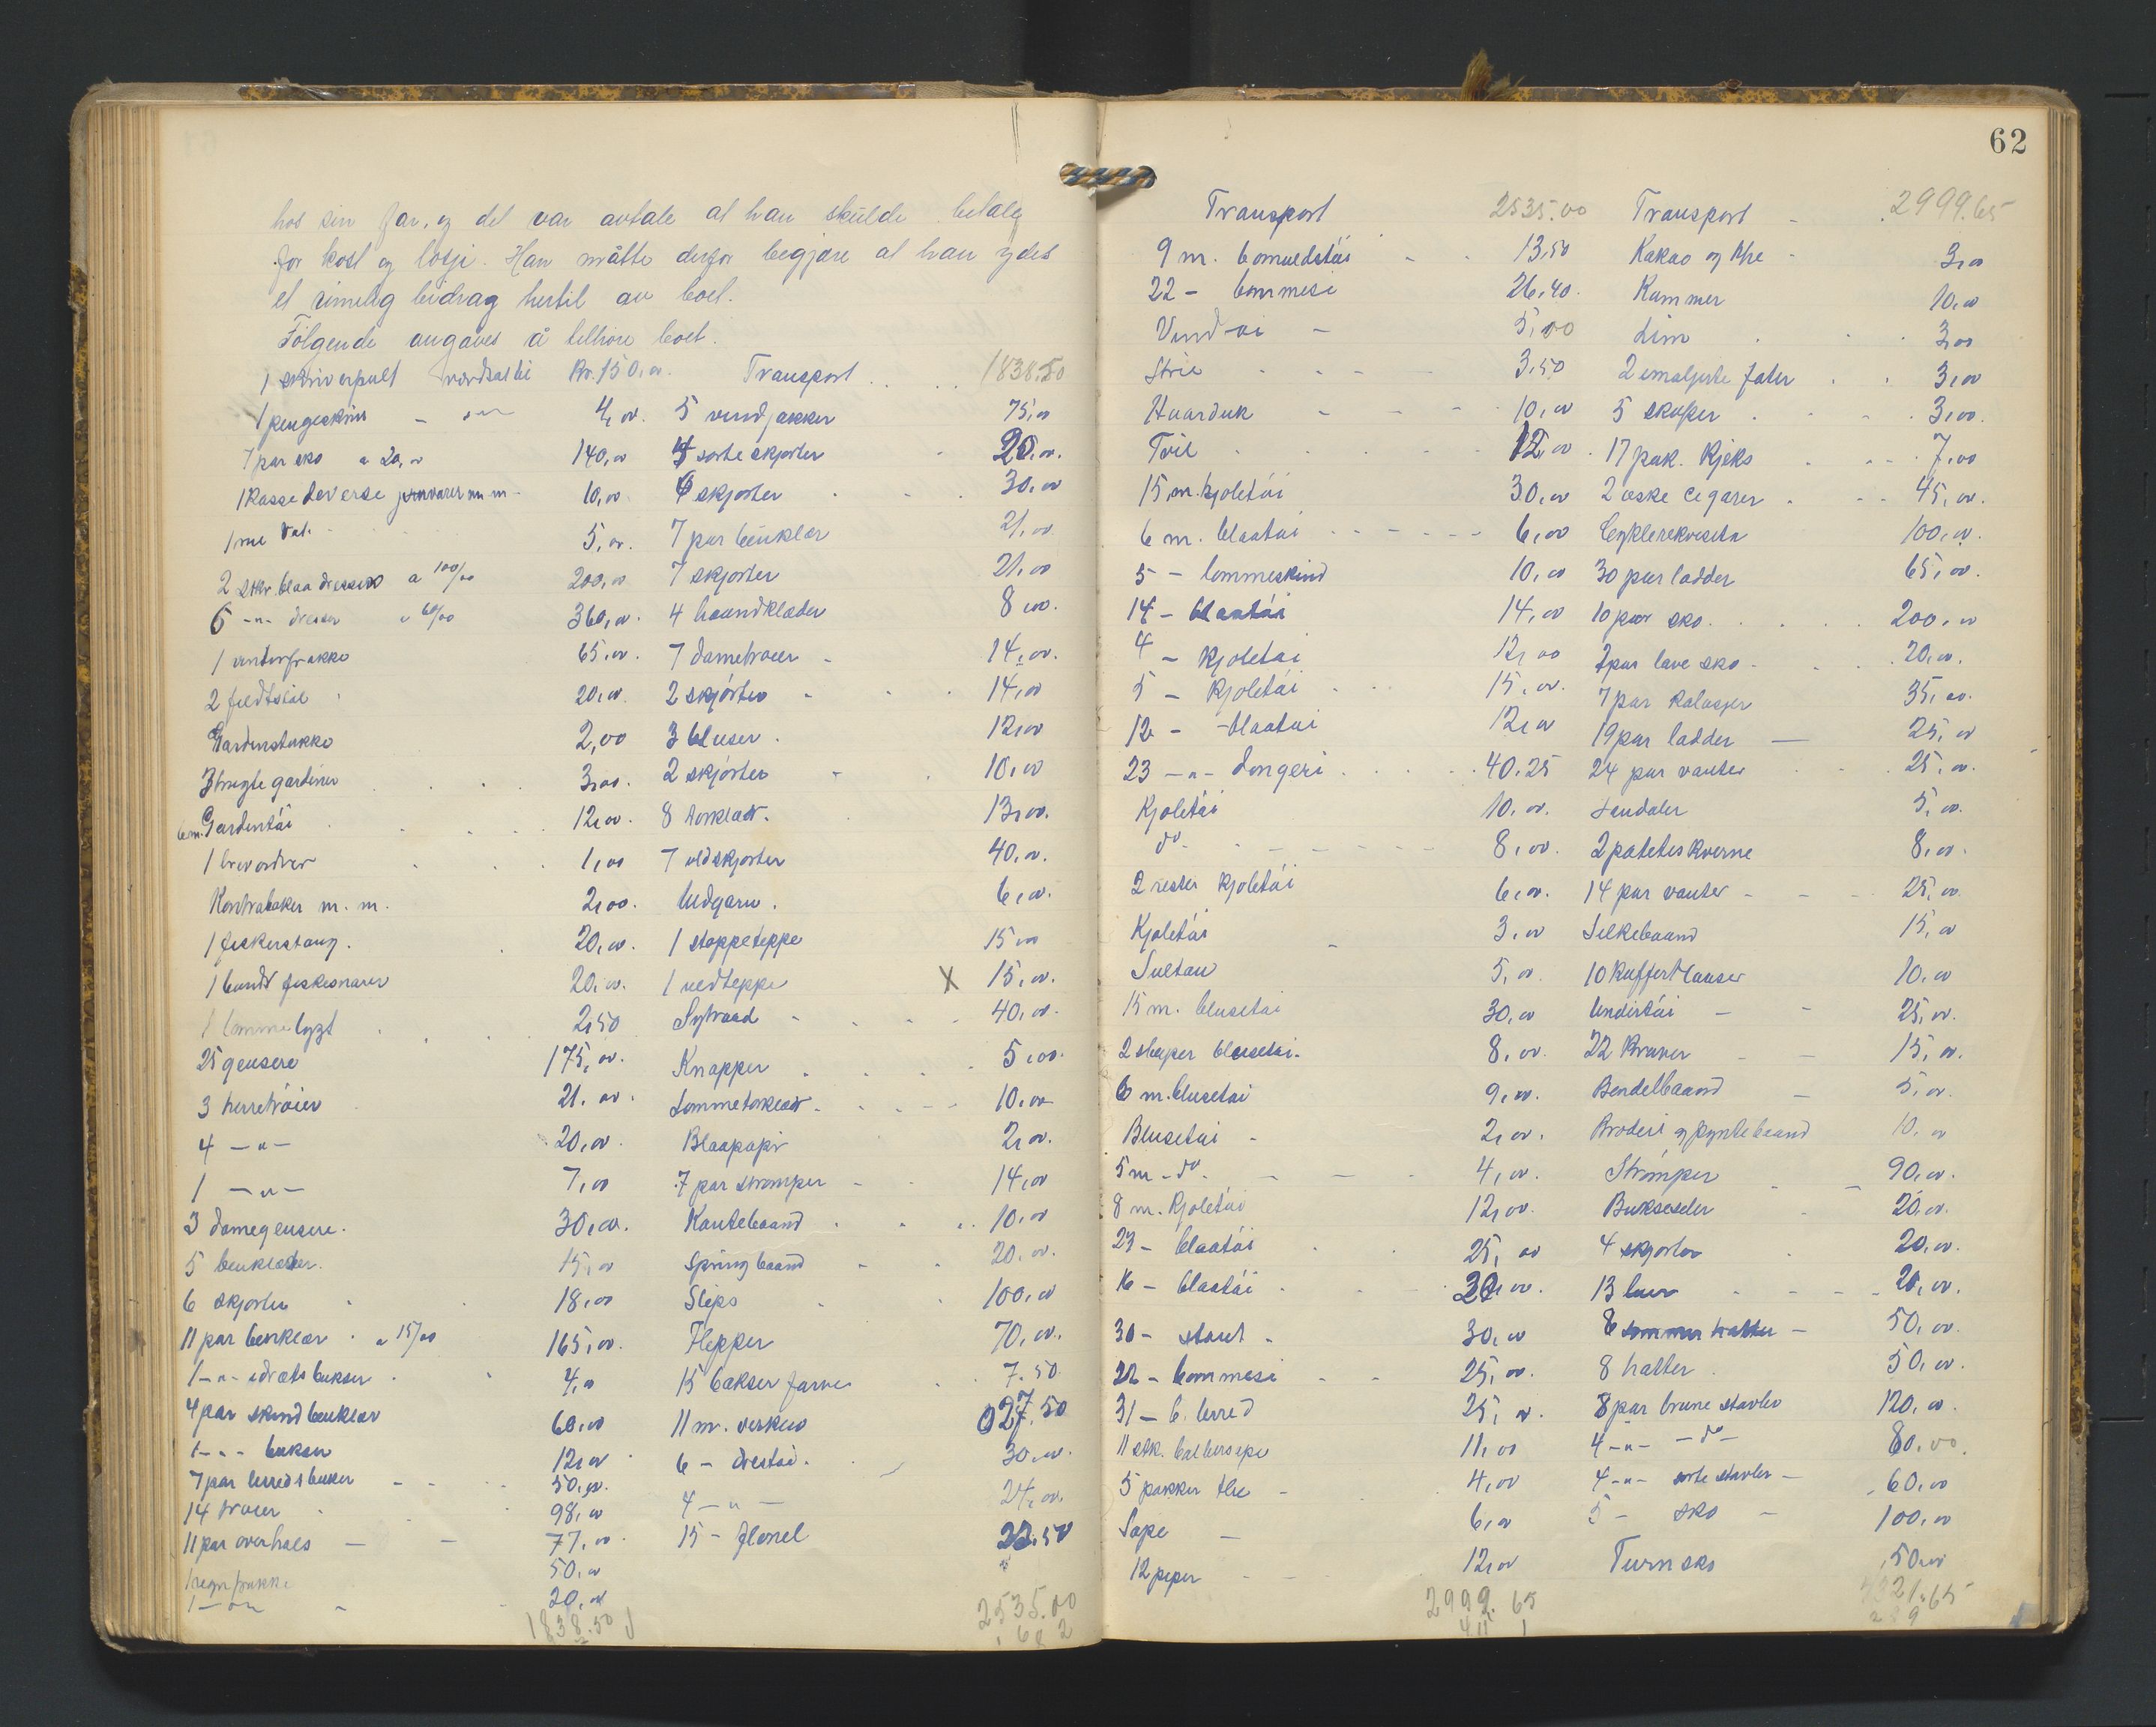 62
hos sin far, og det var avtale at han skulde betale
for kost og losji. Han måtte derfor begjære at han ydes
et rimelig bidrag hertil av boet.
Følgende angaves å tilhøre boet.
1 skriverpult værdsat til Kr. 150,00.
1 pengeskrin - " - 4,00.
7 par sko a 20,00 140,00
1 kasse deverse jernvarer m m - 10,00
5,00.
2 stkr. blaa dresser a 100/00 200,00
6 -"- dresser a 60/00 360,00.
1 vinterfrakke 65,00.
2 20,00.
Gardinstakke 2,00
3 brugte gardiner 3,00.
6 m. Gardintøi 12,00.
1 brevordner 1,00
Kontrabøker m. m. 2,00.
1 fiskestang. 20,00.
1 bundt fiskesnører 20,00.
1 lommelygt 2,50
25 gensere 175,00.
3 herretrøier 21.00.
4 -"- 20,00.
1 -"- 7,00
3 damegensere. 30,00.
5 benklæder. 15,00
6 skjorter 18,00
11 par benklær a 15/00 165,00.
1 -"- idrætsbukser 4,00
4 par skindbenklær 60,00
1 -"- bukser 12,00
7 par lerredsbukser 50,00.
14 trøier 98,00
11 par overhals 77,00.
1 regnfrakke 50,00
1 -"- 20,00
1838.50
Transport 1838.50
5 vindjakker 75,00
4 sorte skjorter 20,00.
6 skjorter 30,00
7 par benklær 21,00.
7 skjorter 21,00
4 haandklæder 8,00.
7 dametrøier 14,00.
2 skjørter 14,00
3 bluser 12,00
2 skjørter 10,00
8 forklær. 13,00.
7 uldskjorter 40,00.
Uldgarn. 6,00.
1 stoppeteppe 15,00
1 uldteppe X 15,00.
Sytraad 40,00.
Knapper 5,00.
Lommetørklær 10,00
Blaapapir 2,00.
7 par strømper 14,00
Kantebaand 10,00
Springbaand 20.00.
Slips 100,00
Flepper 70,00.
15 bakser farve 7.50
11 m. verken 27,50
6 - drestøi 30,00.
4 -"- 24,00.
15 - flonel 22,50
2535.00
Transport 2535.00
9 m. bomuldstøi 13,50
22 - bommesi 26,40.
Vind-øi 5,00
Strie 3,50
Haarduk 10,00
Tvil 12,00
15 m. kjoletøi 30,00
6 m. blaatøi 6,00
5 - lommeskind 10,00
14 - blaatøi 14,00
4 - kjoletøi 12,00
5 - kjoletøi 15,00.
12 - blaatøi 12,00
23 -"- dongeri 40.25
Kjoletøi 10,00.
do. 8,00.
2 rester kjoletøi 6,00.
Kjoletøi 3,00
Sultan 5,00.
15 m. blusetøi 30,00
2 stuper blusetøi. 8,00.
6 m. blusetøi 9,00.
Blusetøi 2,00.
5 m - do. 4,00.
8 m. kjoletøi 12,00.
23 - blaatøi 25,00
16 - blaatøi 32,00.
30 - stout 30,00
22 - bommesi 25,00.
31 - b. lerred 25,00.
11 stk. balbersepe 11,00
5 pakker the 4,00
Sape 6,00
12 piper 12,00
2999.65
Transport 2999.65
Kakao og the 3,00
Kammer 10,00
Lim 3,00
2 emaljerte fater 3,00
5 skuffer 3,00.
17 pak. Kjeks 7,00
2 æske cigarer 45,00.
Cyklerekvisita 100,00.
30 par ladder 65,00.
10 par sko 200,00
2 par lave sko 20,00.
7 par kalosjer 35,00.
19 par ladder 25,00
24 par vanter 25,00.
Sandaler 5,00.
2 potetes kverne 8,00.
14 par vanter 25,00
Silkebaand 15,00
10 kuffert lauser 10,00
Undertøi 25,00.
22 kraver 15,00.
Bendelbaand 5,00.
Broderi og pyntebaand 10,00
Strømper 90,00.
Bukseseler 20,00.
4 skjorter 20,00.
13 luer 20,00.
6 sommer hatter 50,00.
8 hatter 50,00.
8 par brune støvler 120,00.
4 -"- -do- 80,00.
4 -"- sorte støvler 60,00
5 - sko 100,00
Turnsko 50,00
4321.65